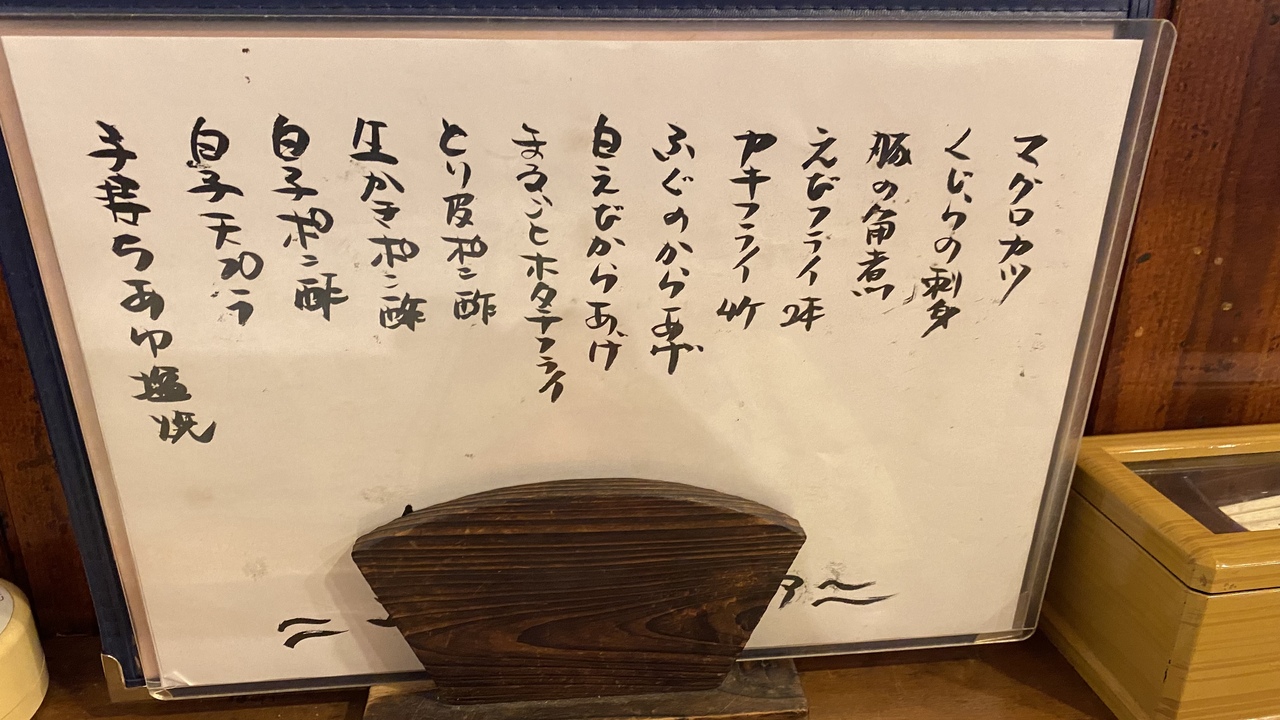 マグロカツ
くじらの刺身
豚の角煮
えびフライ 2本
カキフライ 4ケ
ふぐのから揚げ
白えびからあげ
まるごとホタテフライ
とり皮ポン酢
生かきポン酢
白子ポン酢
白子天プラ
子持ちあゆ塩焼